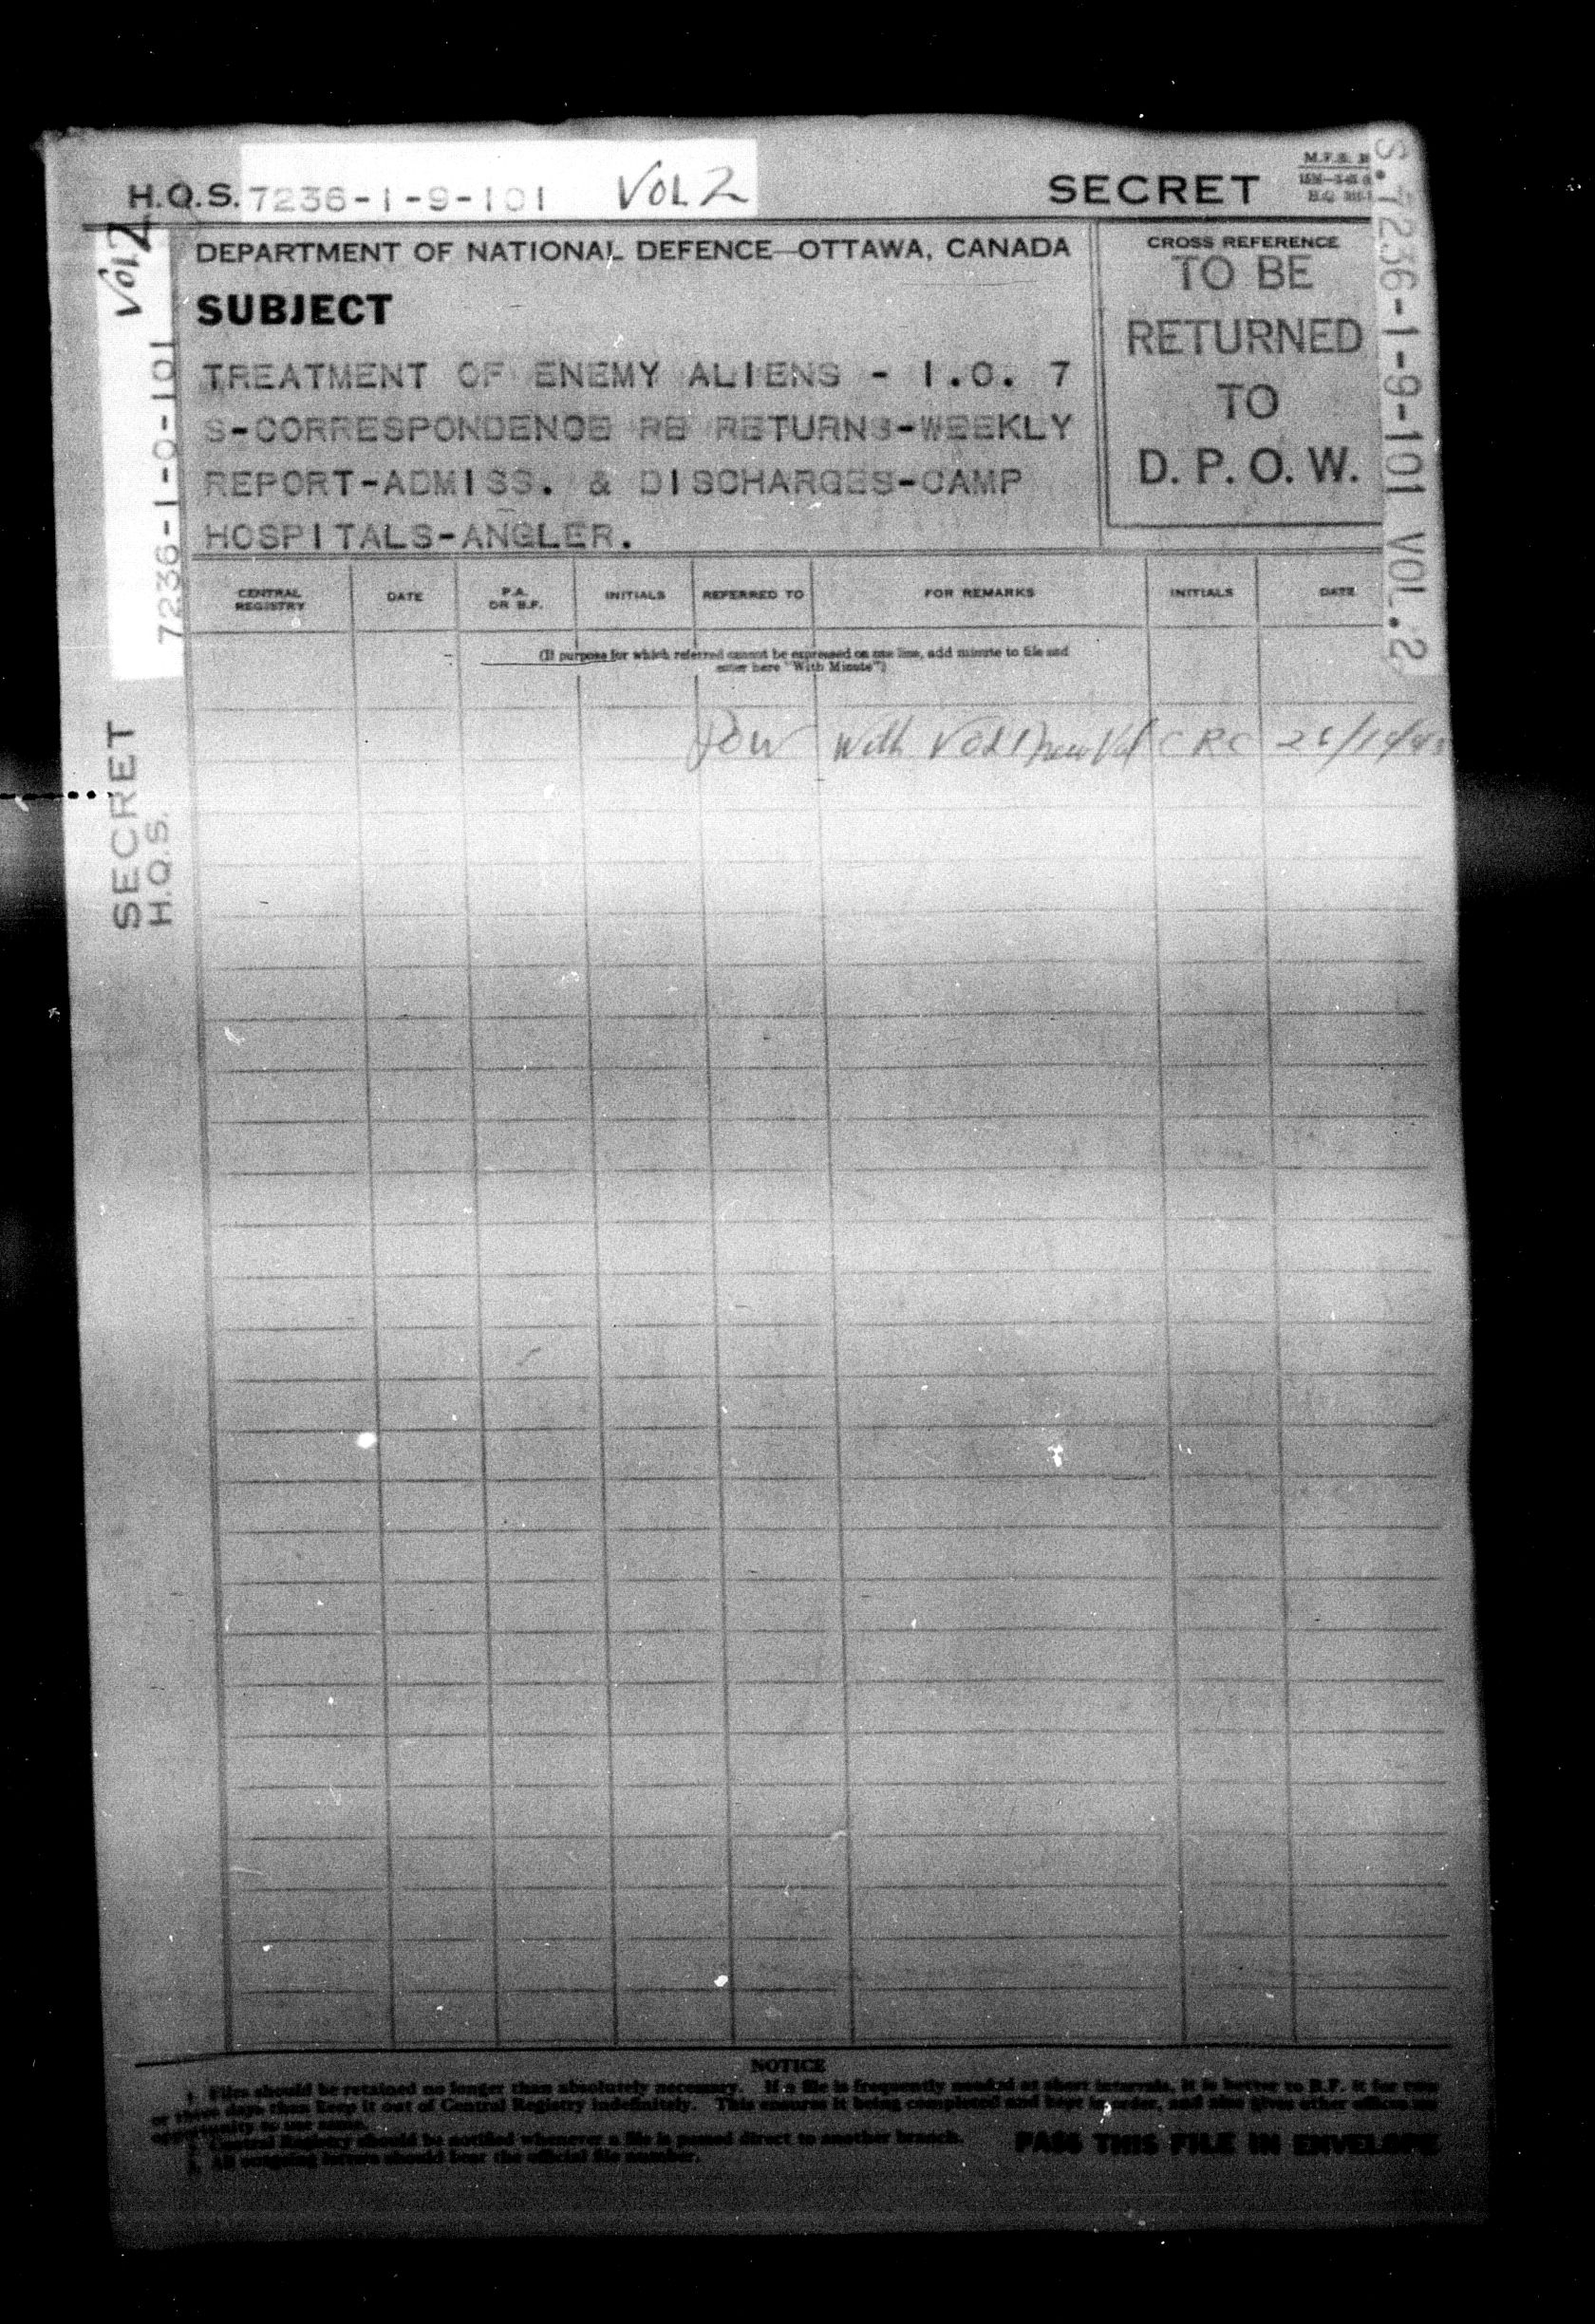 H.Q.S. 7236-1-9-101 VOL 2
SECRET
M.F.B.
DEPARTMENT OF NATIONAL DEFENCE—OTTAWA, CANADA
SUBJECT
TREATMENT OF ENEMY ALIENS - I.O. 7
S-CORRESPONDENCE RE RETURNS-WEEKLY
REPORT-ADMISS. & DISCHARGES-CAMP
HOSPITALS-ANGLER.
CROSS REFERENCE
TO BE
RETURNED
TO
D. P. O. W.
S.7236-1-9-101 VOL.2
Vol 2
7236-1-0-101
SECRET
H.Q.S.
CENTRAL REGISTRY DATE P.A. OR B.F. INITIALS REFERRED TO FOR REMARKS INITIALS DATE
(If purpose for which referred cannot be expressed on one line, add minute to file and
enter here "With Minute")
POW With Vol 1 new Vol CRC
NOTICE
1. Files should be retained no longer than absolutely necessary. If a file is frequently needed at short intervals, it is better to B.F. it for two
or three days than keep it out of Central Registry indefinitely. This ensures it being completed and kept in order, and also gives other offices an
opportunity to use same.
2. Central Registry should be notified whenever a file is passed direct to another branch.
3. All outgoing letters should bear the official file number.
PASS THIS FILE IN ENVELOPE